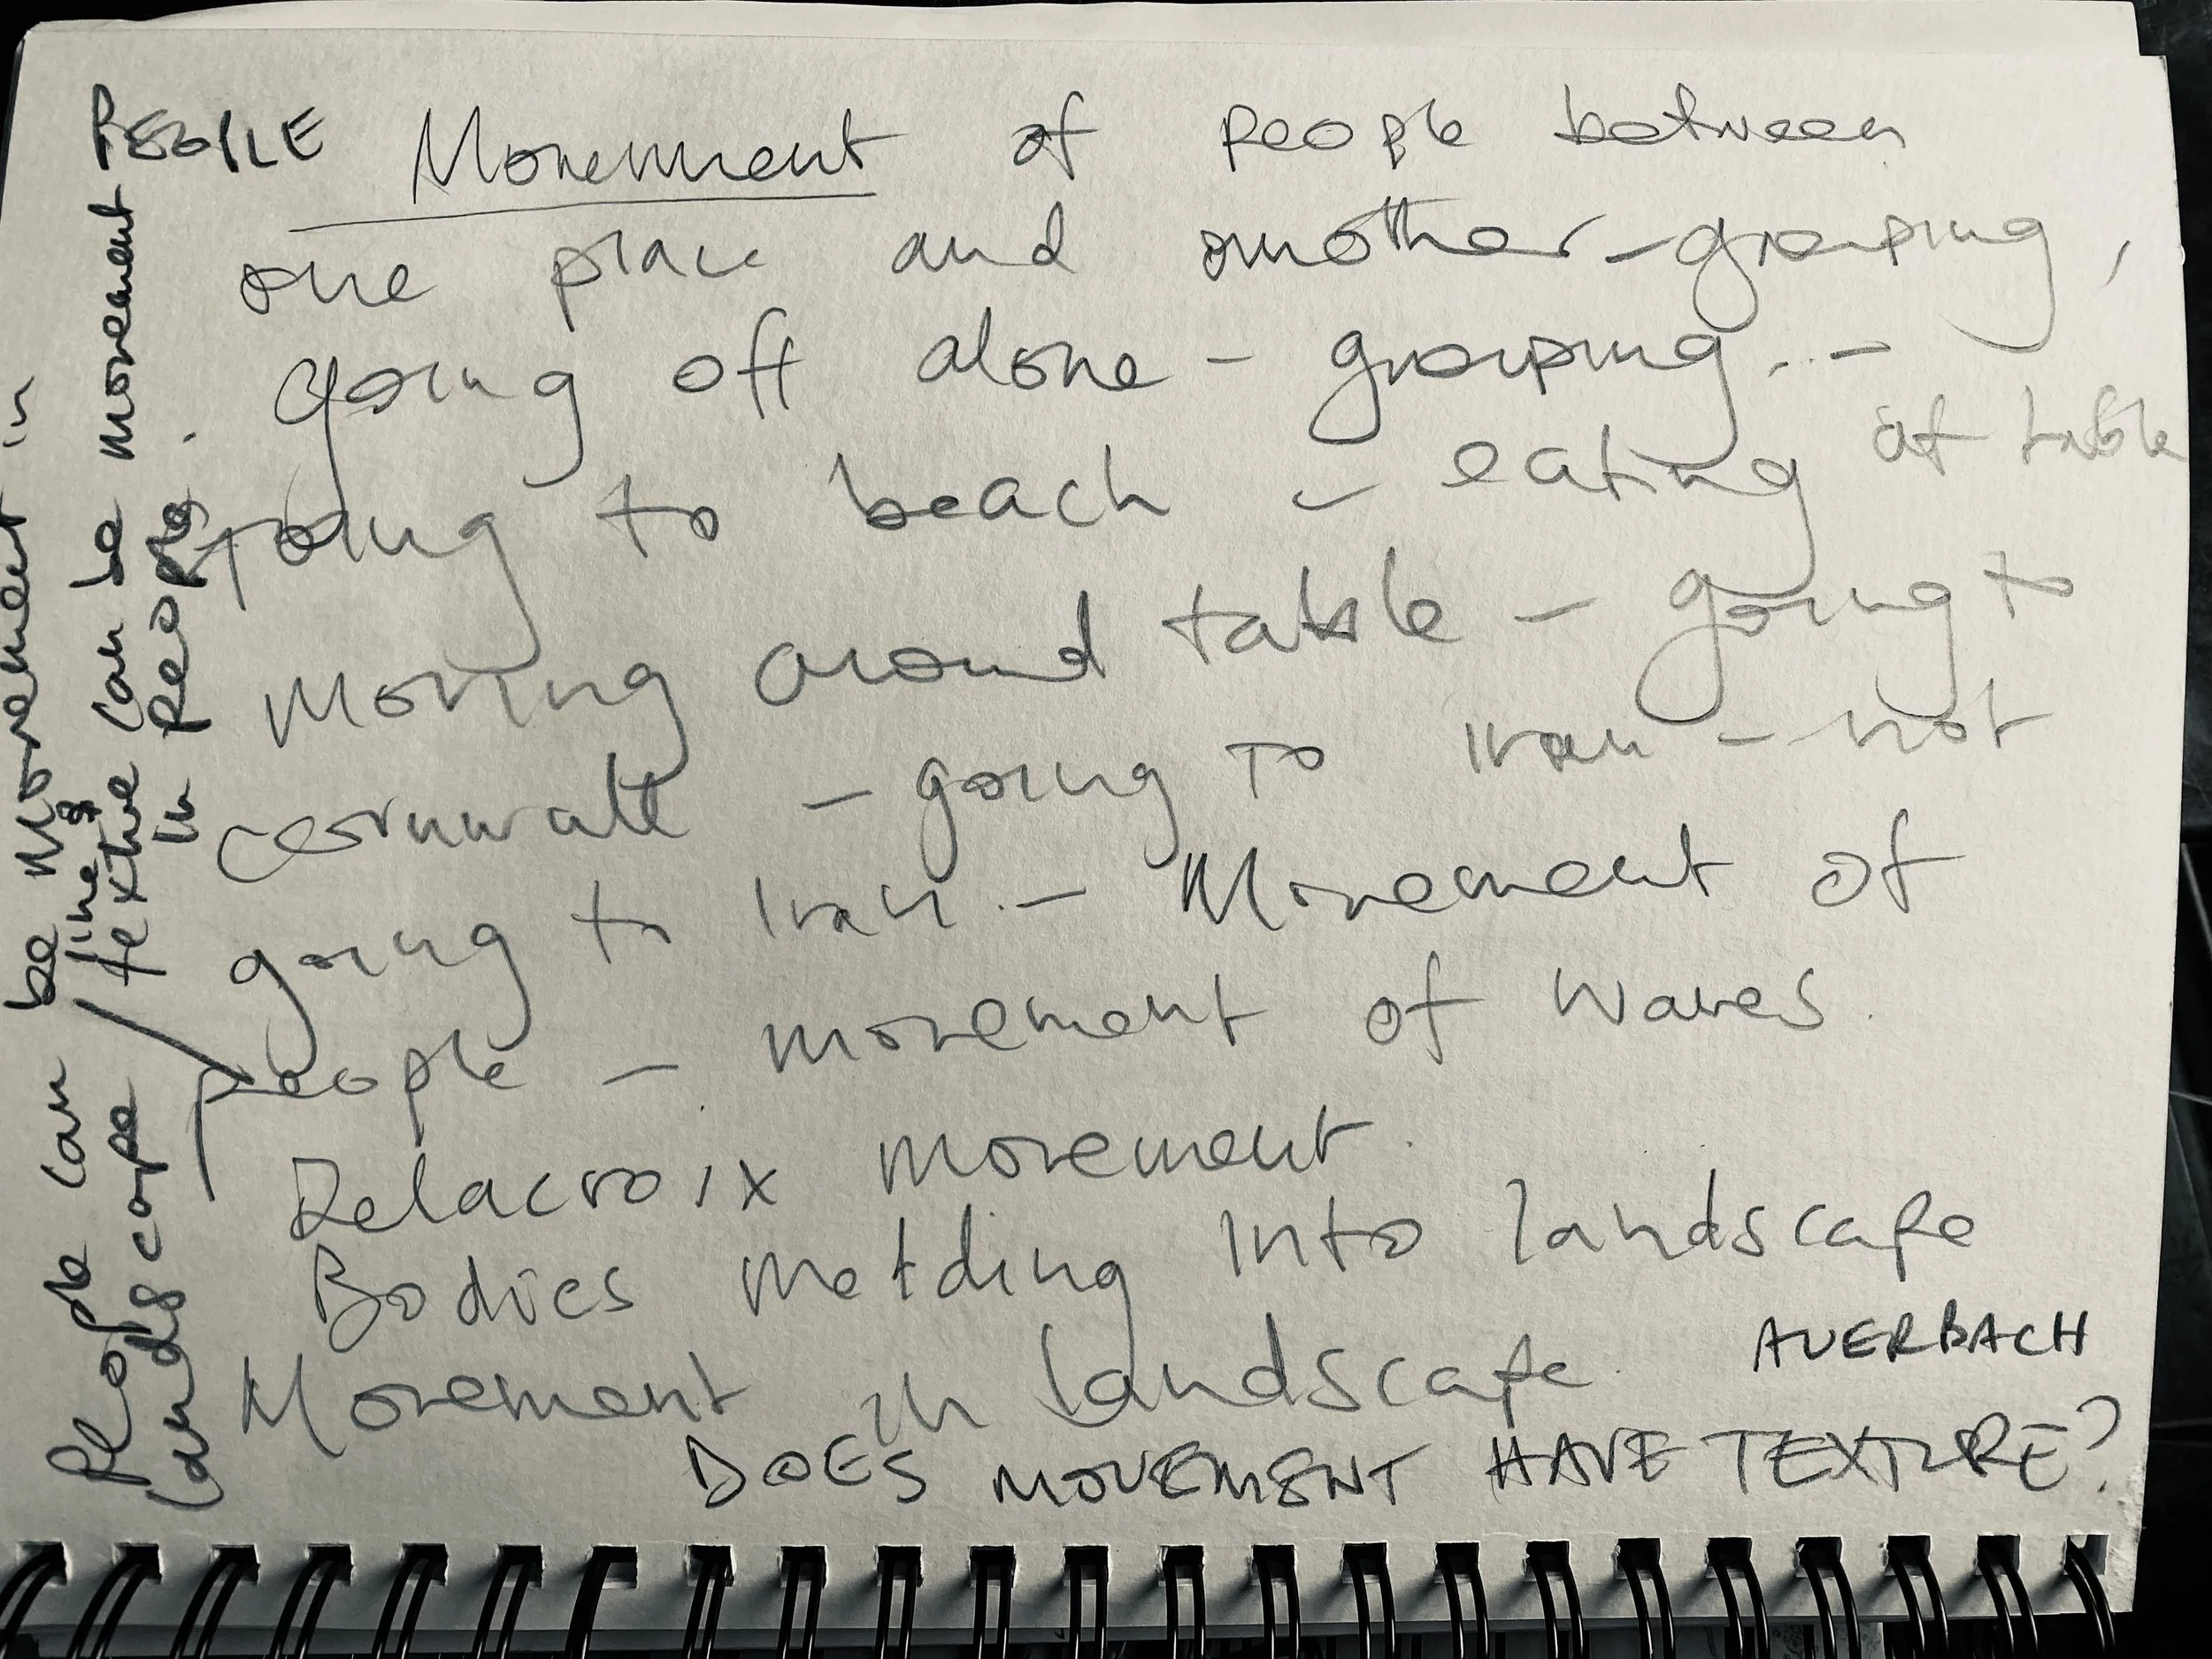 PEOPLE Movement of people between
one place and another - grouping,
going off alone - grouping... -
going to beach - eating at table
moving around table - going to
cornwall - going to Iran - not
going to Iran. - Movement of
people - movement of waves.
Delacroix movement.
Bodies melding into landscape
Movement in landscape. AUERBACH
DOES MOVEMENT HAVE TEXTURE?
People can be Movement in
landscape / line & texture can be movement
in people.